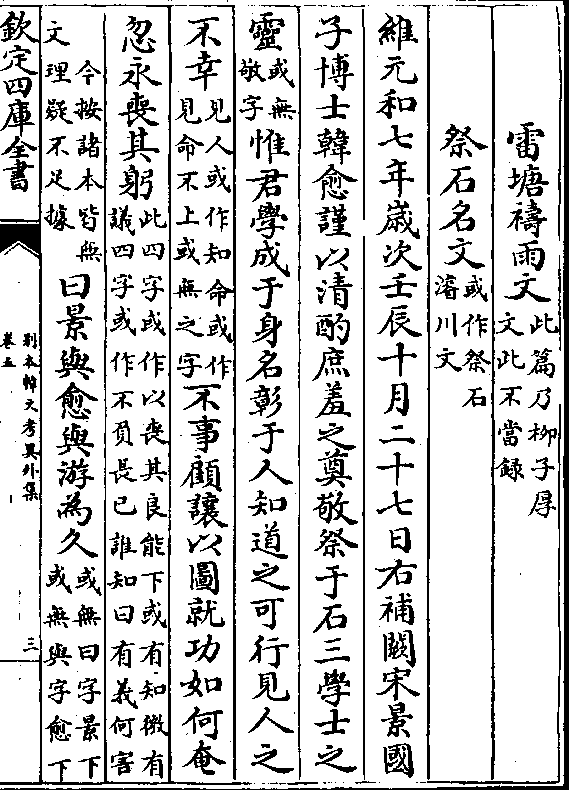 雷塘禱雨文此篇乃柳子厚文此不當録
祭石君文或作祭石濬川文
維元和七年歲次壬辰十月二十七日右補闕宋景國
子博士韓愈謹以清酌庶羞之奠敬祭于石三學士之
靈或無敬字惟君學成于身名彰于人知道之可行見人之
不幸見人或作知命或作見命不上或無之字不事顧讓以圖就功如何奄
忽永喪其躬此四字或作以喪其良能下或有知微有議四字或作不負長已誰知曰有義何害
今按諸本皆無文理疑不足據曰景與愈與游為久或無曰字景下或無與字愈下
欽定四庫全書
別本韓文考異外集
卷五
三